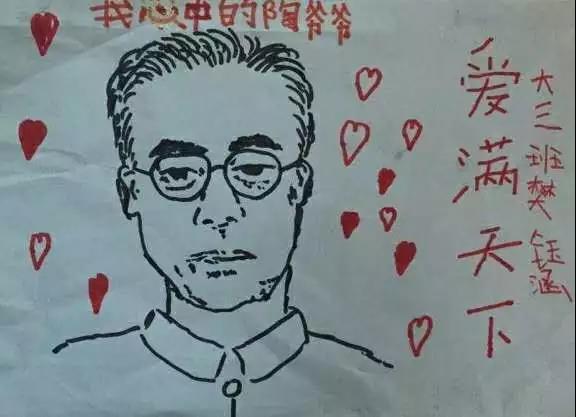 我心中的陶爷爷
爱满天下
大三班樊钰涵